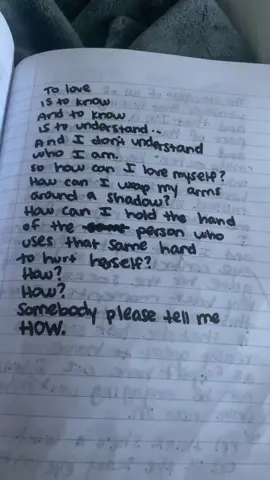 To love
is to know
And to know
is to understand..
And I don't understand
who I am.
so how can I love myself?
How can I wrap my arms
around a shadow?
How can I hold the hand
of the person who
uses that same hand
to hurt herself?
How?
How?
Somebody please tell me
HOW.